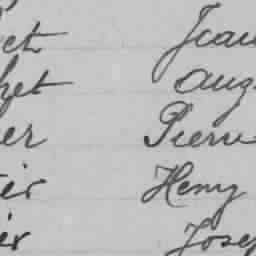 et Jean
het Aug
er Pierre
ier Henry
ier Josep